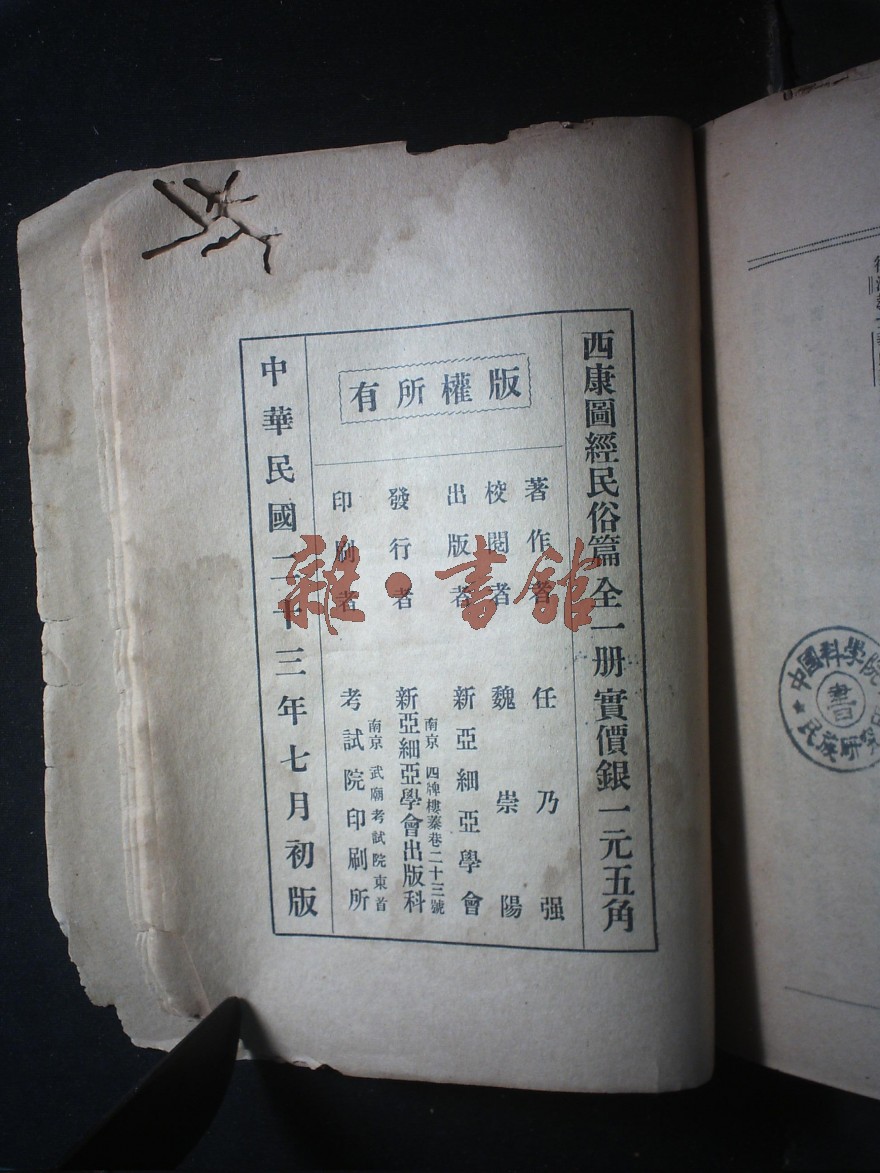 西康圖經民俗篇 全一册 實價銀一元五角
版權所有
著作者 任乃强
校閱者 魏崇陽
出版者 新亞細亞學會
南京 四牌樓蓁巷二十三號
發行者 新亞細亞學會出版科
南京 武廟考試院東首
印刷者 考試院印刷所
中華民國二十三年七月初版
雜·書館
中國科學院
民族研究
書